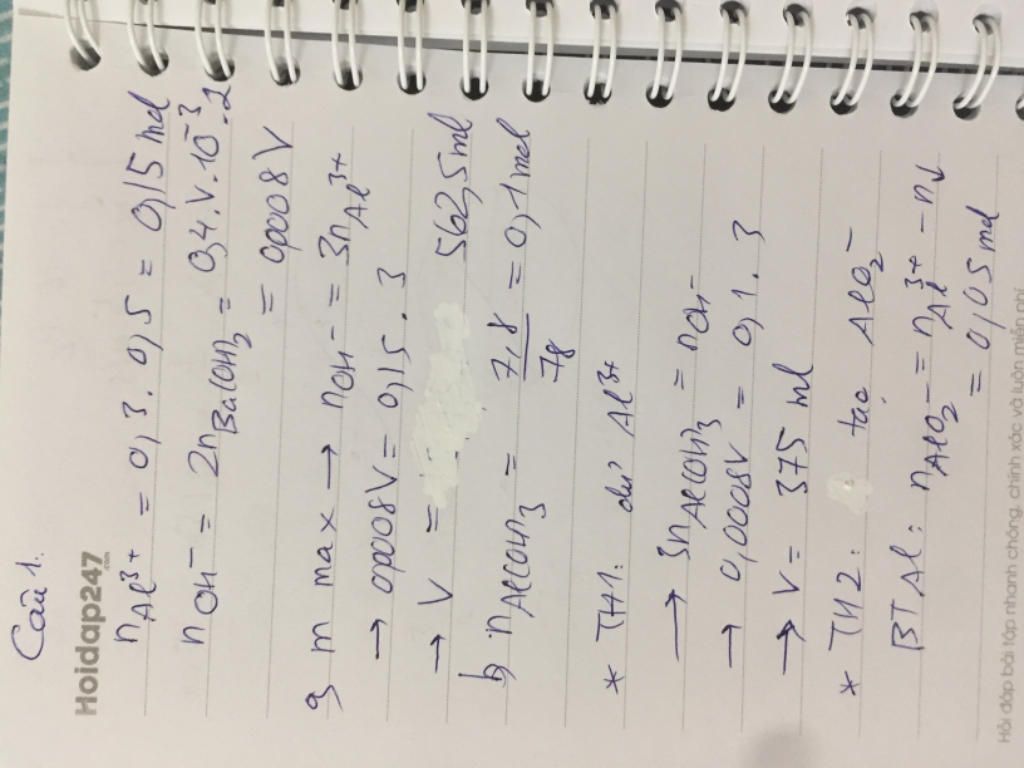 Câu 1.
Hoidap247.com
nAl³⁺ = 0,3 . 0,5 = 0,15 mol
nOH⁻ = 2nBa(OH)₂ = 0,4.V.10⁻³.2
= 0,0008V
a, m max → nOH⁻ = 3nAl³⁺
→ 0,0008V = 0,15 . 3
→ V = 562,5 ml
b, nAl(OH)₃ = 7,8/78 = 0,1 mol
* TH1: dư Al³⁺
→ 3nAl(OH)₃ = nOH⁻
→ 0,0008V = 0,1 . 3
→ V = 375 ml
* TH2: tạo AlO₂⁻
BTAl: nAlO₂⁻ = nAl³⁺ - n↓
= 0,05 mol
Hỏi đáp bài tập nhanh chóng, chính xác và luôn miễn phí